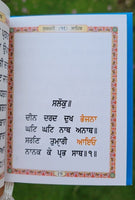 ਸੁਖਮਨੀ (੧੬) ਸਾਹਿਬ
ਸਲੋਕੁ॥
ਦੀਨ ਦਰਦ ਦੁਖ ਭੰਜਨਾ
ਘਟਿ ਘਟਿ ਨਾਥ ਅਨਾਥ॥
ਸਰਣਿ ਤੁਮ੍ਹਾਰੀ ਆਇਓ
ਨਾਨਕ ਕੇ ਪ੍ਰਭ ਸਾਥ॥੧॥